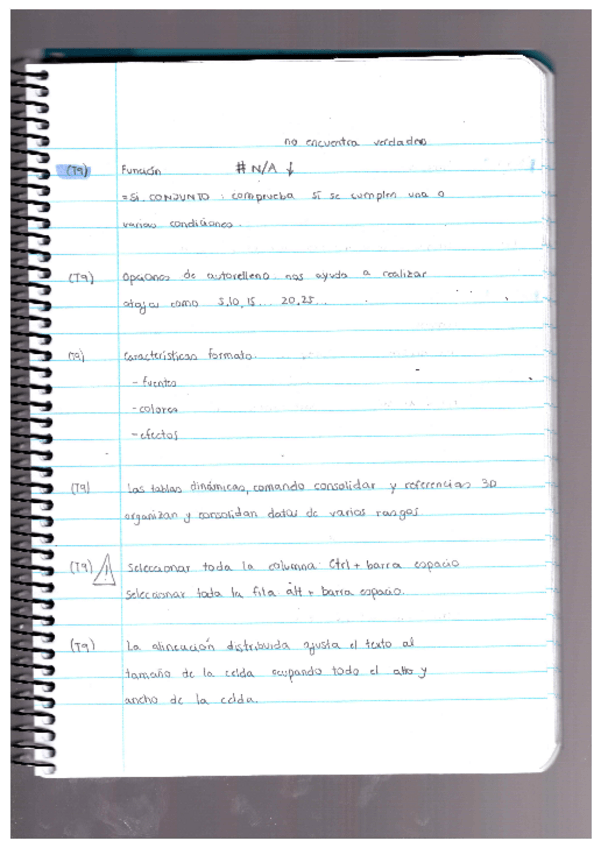 no encuentra verdadero
(T9) Función #N/A ↓
=SI.CONJUNTO : comprueba si se cumplen una o
varias condiciones.
(T9) Opciones de autorelleno nos ayuda a realizar
como 5,10,15... 20,25...
(T9) Características formato.
- fuentes
- colores
- efectos
(T9) Las tablas dinámicas, comando consolidar y referencias 3D
organizan y consolidan datos de varios rangos
(T9) Seleccionar toda la columna Ctrl + barra espacio
Seleccionar toda la fila alt + barra espacio.
(T9) La alineación distribuida ajusta el texto al
tamaño de la celda ocupando todo el alto y
ancho de la celda.